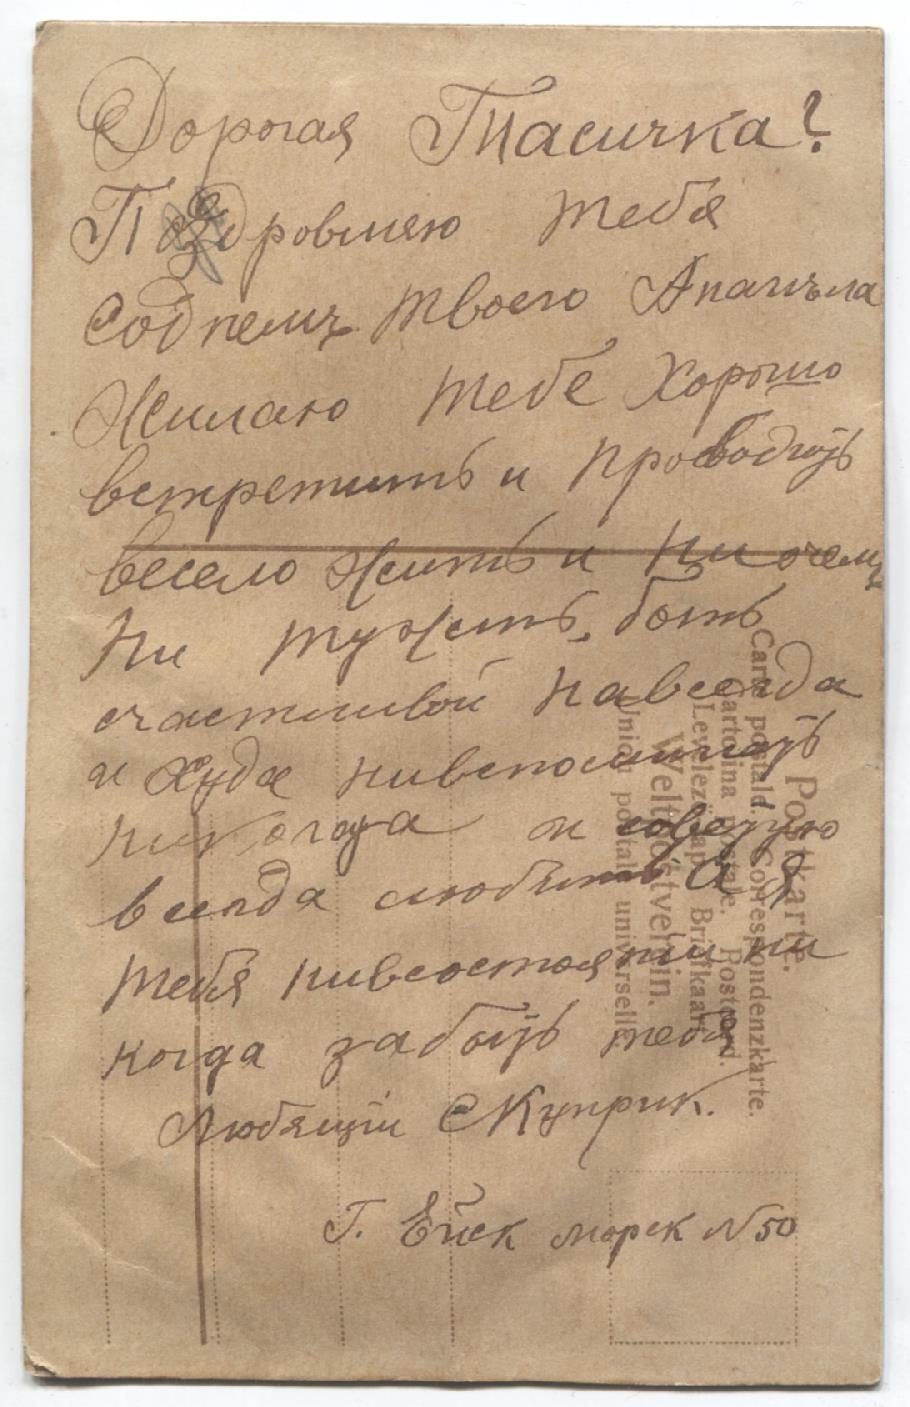 Дорогая Тасичка?
Поздровляю тебя
Содпемъ твоего Апаиъла
Жилаю тебе хорошо
встретить и проводуть
весело жить и ни очемъ
ни тужить, быть
счастливой навсегда
и худа нивспоминуть
никогда и советую
всегда любить а я
тебя нивсостоянии ни
когда забыть тебя
Любящiи С Куприк.
Г. Ейск морск N 50
Postkarte.
Carte postale. Correspondenzkarte.
Cartolina postale. Postcard.
Levelező-Lap. Briefkaart.
Weltpostverein.
Union postale universelle.